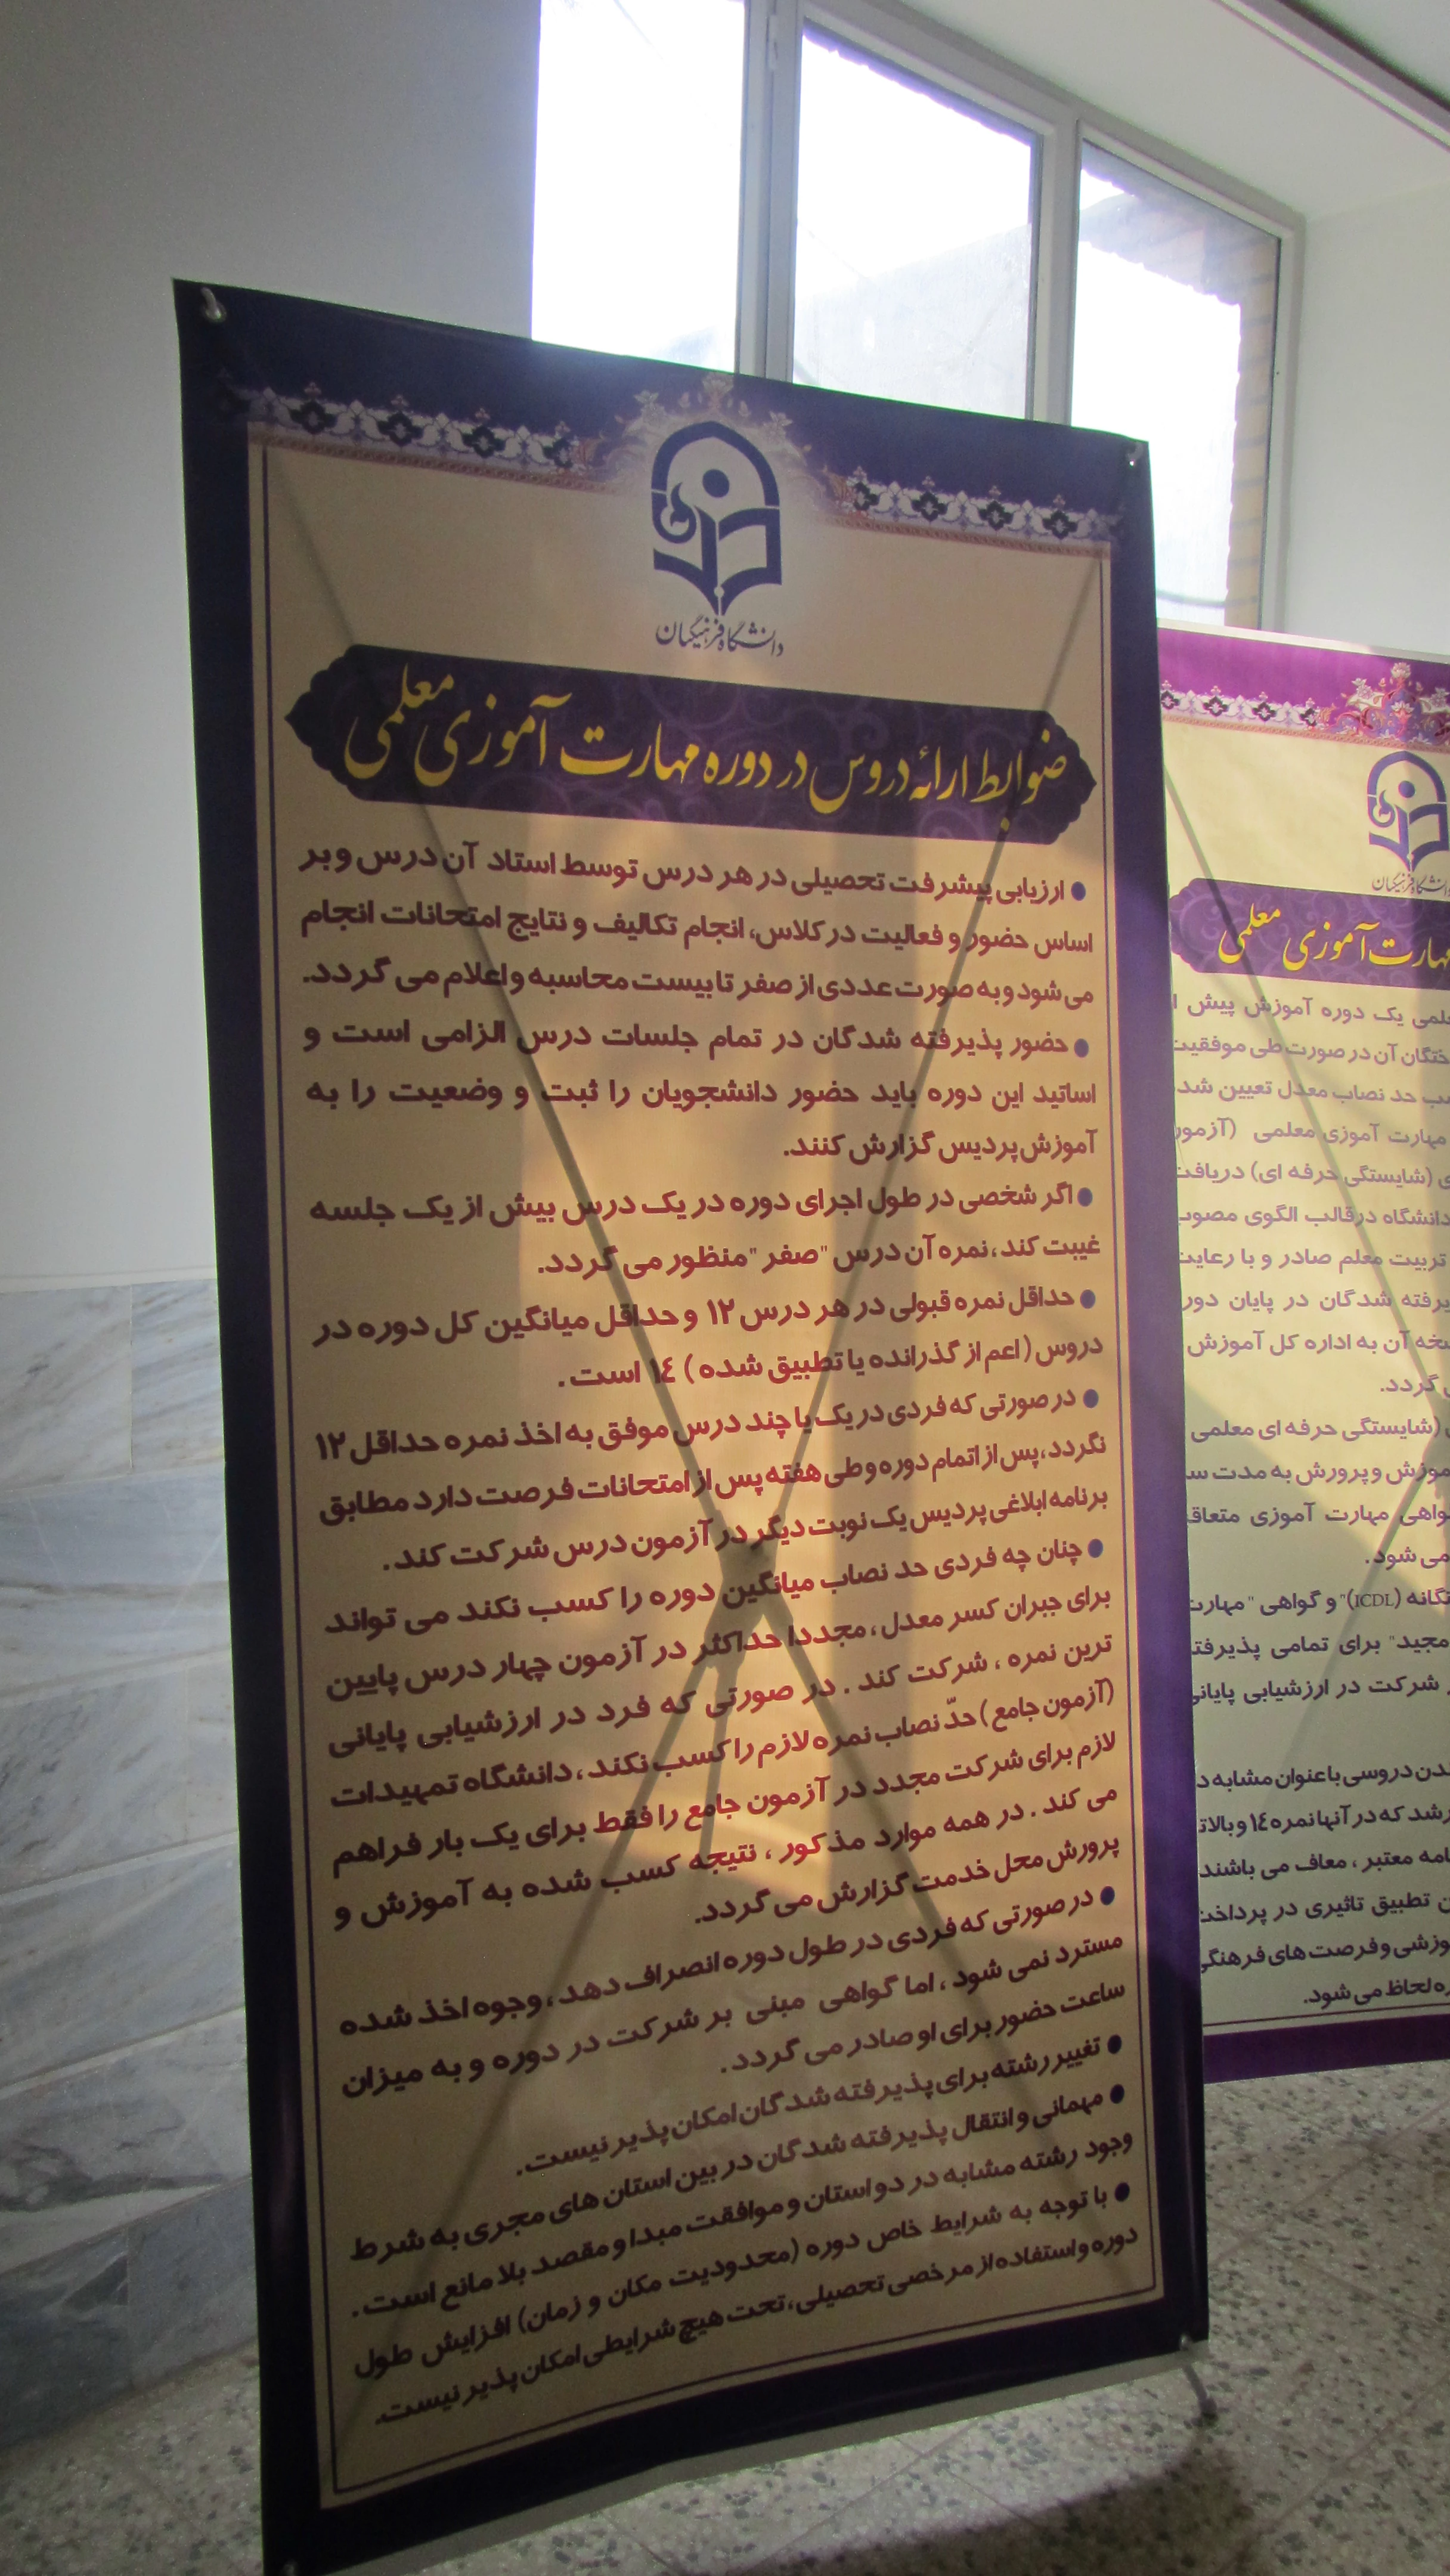 دانشگاه فرهنگیان
ضوابط ارائه دروس در دوره مهارت آموزی معلمی
● ارزیابی پیشرفت تحصیلی در هر درس توسط استاد آن درس و بر
اساس حضور و فعالیت در کلاس، انجام تکالیف و نتایج امتحانات انجام
می شود و به صورت عددی از صفر تا بیست محاسبه و اعلام می گردد.
● حضور پذیرفته شدگان در تمام جلسات درس الزامی است و
اساتید این دوره باید حضور دانشجویان را ثبت و وضعیت را به
آموزش پردیس گزارش کنند.
● اگر شخصی در طول اجرای دوره در یک درس بیش از یک جلسه
غیبت کند، نمره آن درس "صفر" منظور می گردد.
● حداقل نمره قبولی در هر درس ۱۲ و حداقل میانگین کل دوره در
دروس (اعم از گذرانده یا تطبیق شده) ١٤ است.
● در صورتی که فردی در یک یا چند درس موفق به اخذ نمره حداقل ۱۲
نگردد، پس از اتمام دوره و طی هفته پس از امتحانات فرصت دارد مطابق
برنامه ابلاغی پردیس یک نوبت دیگر در آزمون درس شرکت کند.
● چنان چه فردی حد نصاب میانگین دوره را کسب نکند می تواند
برای جبران کسر معدل، مجددا حداکثر در آزمون چهار درس پایین
ترین نمره، شرکت کند. در صورتی که فرد در ارزشیابی پایانی
(آزمون جامع) حدّ نصاب نمره لازم را کسب نکند، دانشگاه تمهیدات
لازم برای شرکت مجدد در آزمون جامع را فقط برای یک بار فراهم
می کند. در همه موارد مذکور، نتیجه کسب شده به آموزش و
پرورش محل خدمت گزارش می گردد.
● در صورتی که فردی در طول دوره انصراف دهد، وجوه اخذ شده
مسترد نمی شود، اما گواهی مبنی بر شرکت در دوره و به میزان
ساعت حضور برای او صادر می گردد.
● تغییر رشته برای پذیرفته شدگان امکان پذیر نیست.
● مهمانی و انتقال پذیرفته شدگان در بین استان های مجری به شرط
وجود رشته مشابه در دو استان و موافقت مبدا و مقصد بلا مانع است.
● با توجه به شرایط خاص دوره (محدودیت مکان و زمان) افزایش طول
دوره و استفاده از مرخصی تحصیلی، تحت هیچ شرایطی امکان پذیر نیست.
مهارت آموزی معلمی
یک دوره آموزش پیش
آن در صورت طی موفقیت
حد نصاب معدل تعیین شد
مهارت آموزی معلمی (آزمون
(شایستگی حرفه ای) دریافت
دانشگاه در قالب الگوی مصوب
تربیت معلم صادر و با رعایت
شدگان در پایان دور
آن به اداره کل آموزش
گردد.
(شایستگی حرفه ای معلمی
و پرورش به مدت
مهارت آموزی
می شود.
(ICDL)" و گواهی "مهارت
مجید" برای تمامی
شرکت در ارزشیابی پایانی
دروسی با عنوان مشابه
که در آنها نمره ١٤ و بالاتر
معتبر، معاف می باشند
تطبیق تاثیری در پرداخت
و فرصت های فرهنگی
لحاظ می شود.